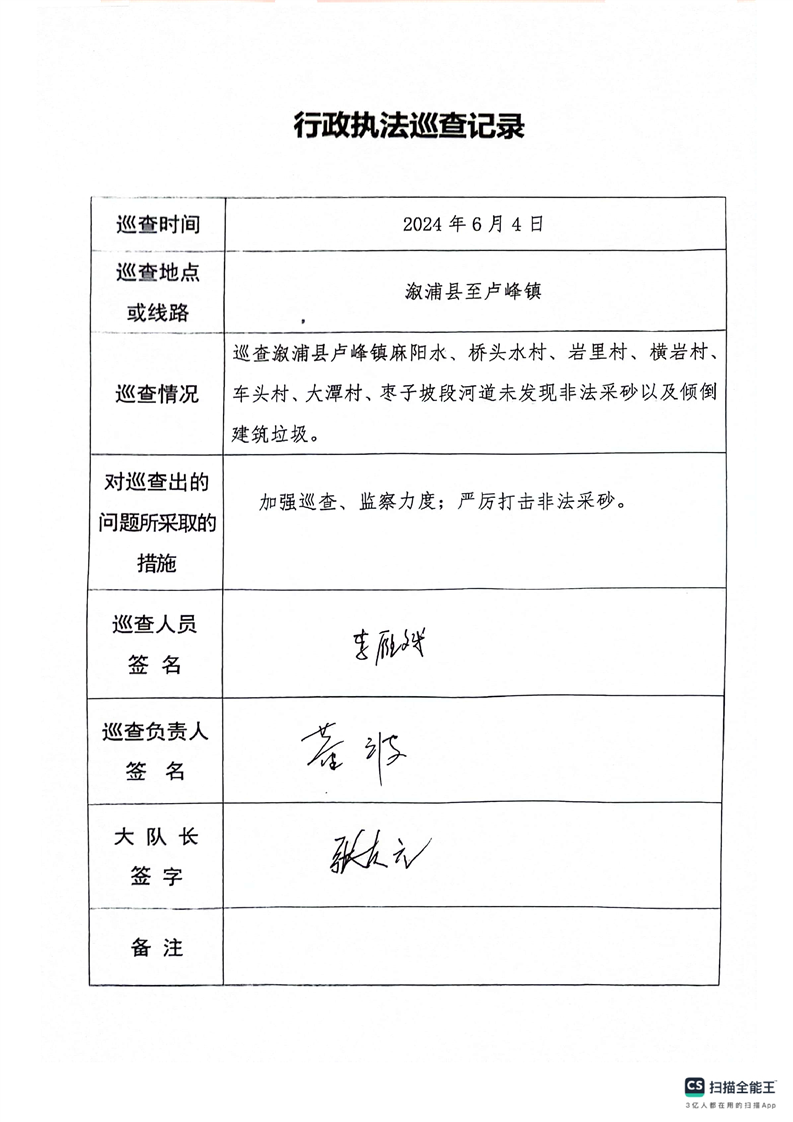 行政执法巡查记录
巡查时间
2024 年 6 月 4 日
巡查地点
或线路
溆浦县至卢峰镇
巡查情况
巡查溆浦县卢峰镇麻阳水、桥头水村、岩里村、横岩村、
车头村、大潭村、枣子坡段河道未发现非法采砂以及倾倒
建筑垃圾。
对巡查出的
问题所采取的
措施
加强巡查、监察力度；严厉打击非法采砂。
巡查人员
签 名
李雁
巡查负责人
签 名
波
大 队 长
签 字
张友元
备 注
CS 扫描全能王
3亿人都在用的扫描App